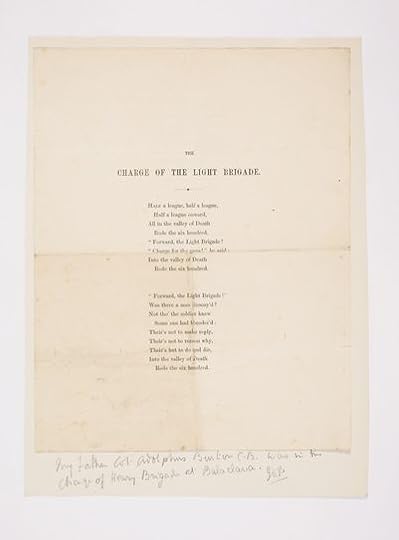 THE
CHARGE OF THE LIGHT BRIGADE.
Half a league, half a league,
Half a league onward,
All in the valley of Death
Rode the six hundred.
“ Forward, the Light Brigade!
“ Charge for the guns!” he said:
Into the valley of Death
Rode the six hundred.
“ Forward, the Light Brigade!”
Was there a man dismay'd?
Not tho' the soldier knew
Some one had blunder'd:
Their's not to make reply,
Their's not to reason why,
Their's but to do and die,
Into the valley of Death
Rode the six hundred.
My Father Col. Adolphus Burton C.B. was in the
Charge of Heavy Brigade at Balaclava.